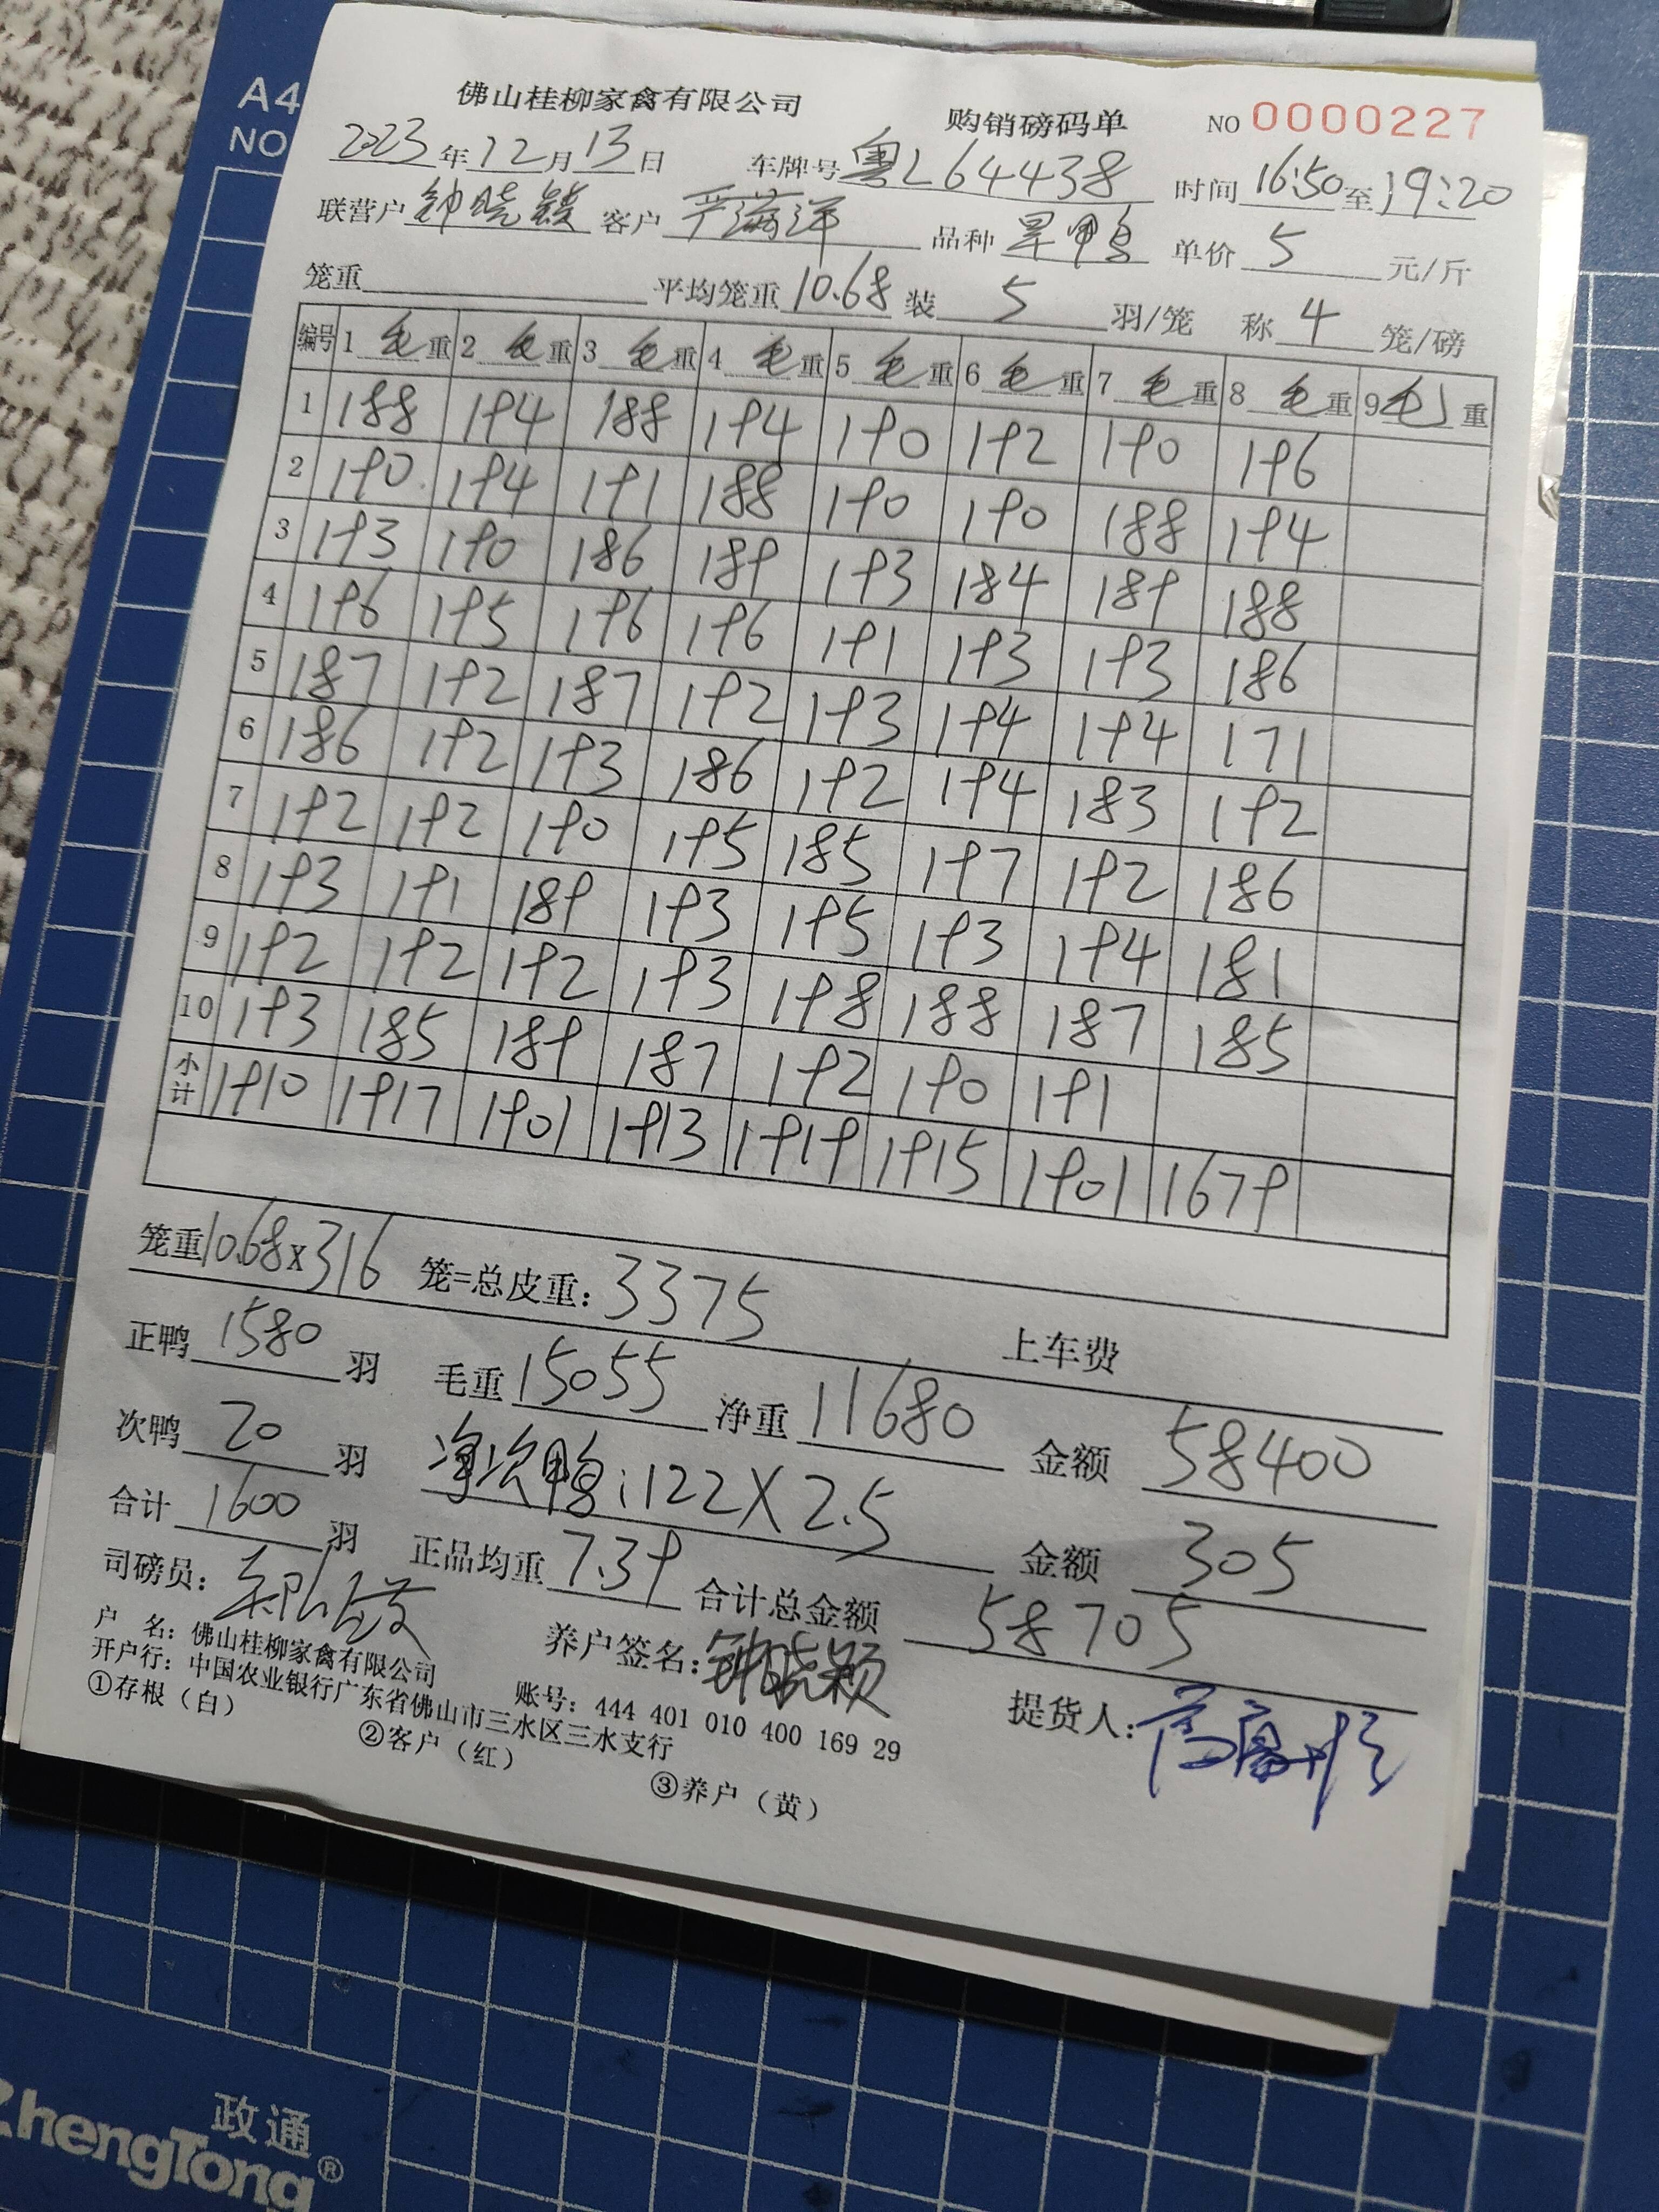 A4
NO
佛山桂柳家禽有限公司 购销磅码单 NO 0000227
2023年12月13日 车牌号 粤L64438 时间 16:50至19:20
联营户 钟晓颖 客户 严满洋 品种 旱鸭 单价 5 元/斤
笼重 平均笼重 10.68 装 5 羽/笼 称 4 笼/磅
编号 1 毛重 2 毛重 3 毛重 4 毛重 5 毛重 6 毛重 7 毛重 8 毛重 9 毛重
1 188 194 188 194 190 192 190 196
2 190 194 191 188 190 190 188 194
3 193 190 186 189 193 184 189 188
4 196 195 196 196 191 193 193 186
5 187 192 187 192 193 194 194 171
6 186 192 193 186 192 194 183 192
7 192 192 190 195 185 197 192 186
8 193 191 189 193 195 193 194 181
9 192 192 192 193 198 188 187 185
10 193 185 189 187 192 190 191
小计 1910 1917 1901 1913 1919 1915 1901 1679
笼重10.68x316 笼=总皮重: 3375 上车费
正鸭 1580 羽 毛重 15055 净重 11680 金额 58400
次鸭 20 羽 净次鸭: 122 X 2.5 金额 305
合计 1600 羽 正品均重 7.39 合计总金额 58705
司磅员: 养户签名: 钟晓颖 提货人:
户 名: 佛山桂柳家禽有限公司 账号: 444 401 010 400 169 29
开户行: 中国农业银行广东省佛山市三水区三水支行
①存根（白） ②客户（红） ③养户（黄）
政通
ZhengTong®